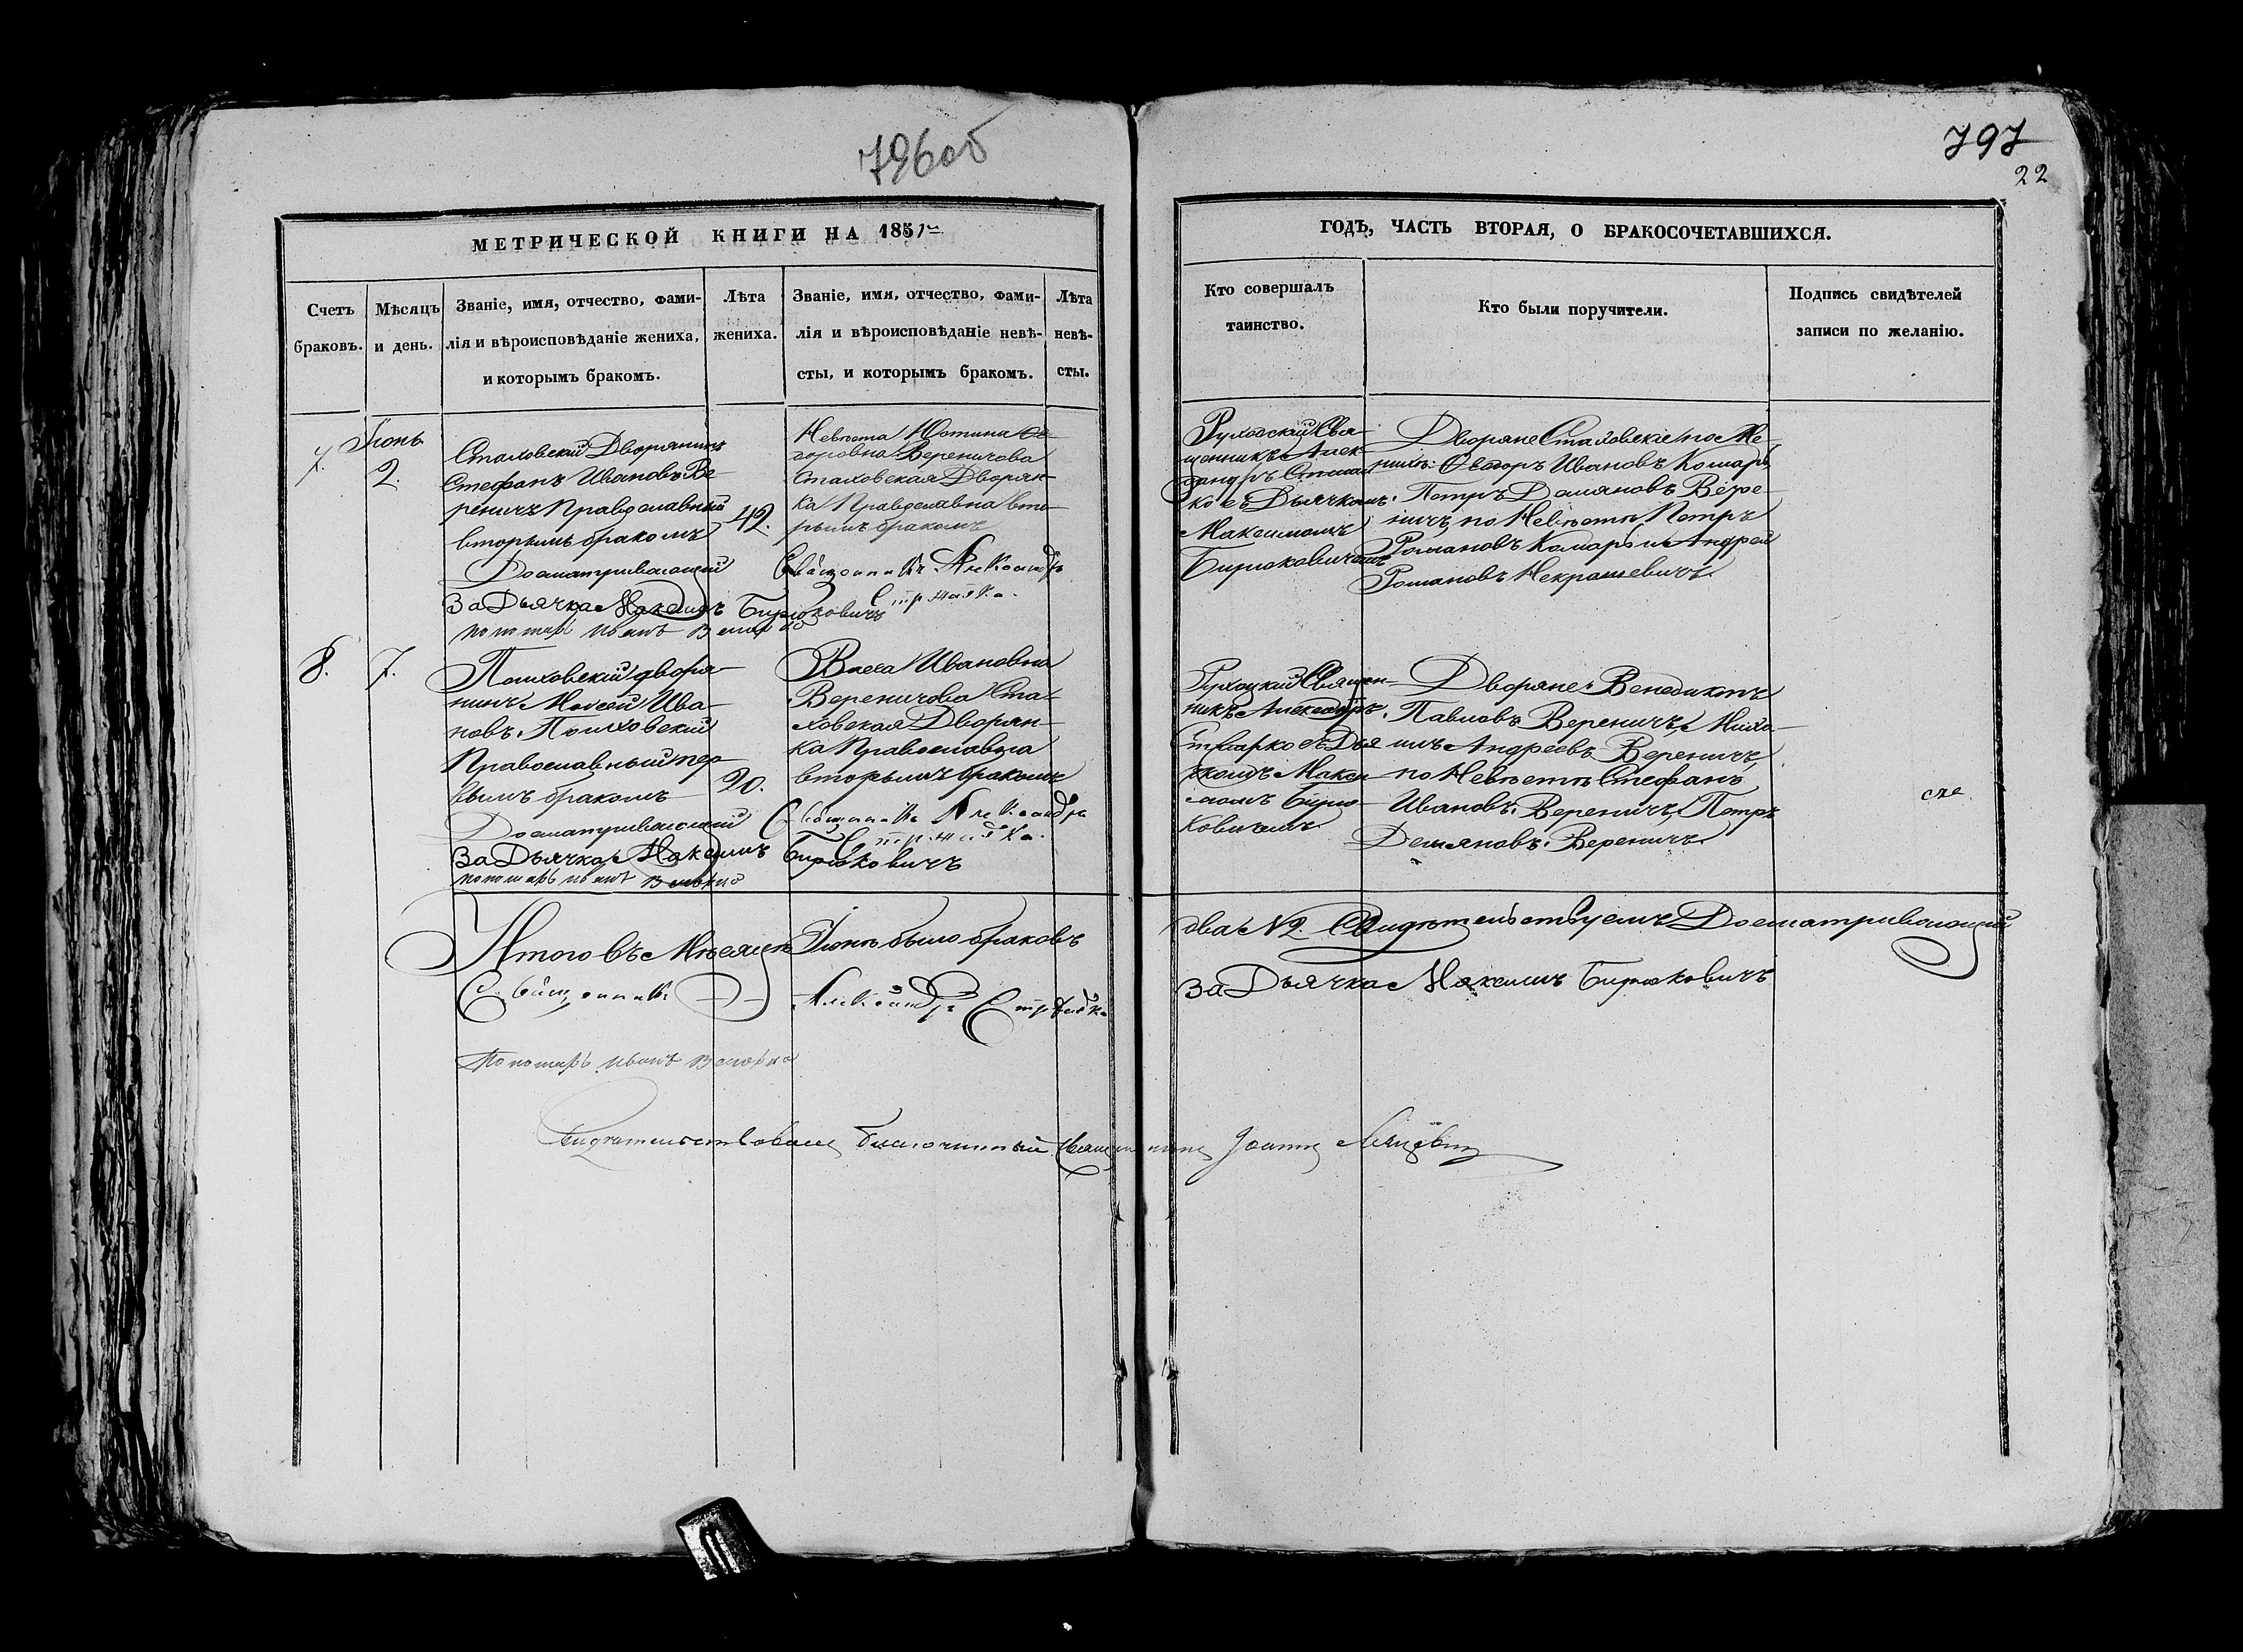 796об
797
22
МЕТРИЧЕСКОЙ КНИГИ НА 1851
ГОДЪ, ЧАСТЬ ВТОРАЯ, О БРАКОСОЧЕТАВШИХСЯ.
Счетъ
браковъ.
Мѣсяцъ
и день.
Званіе, имя, отчество, фами-
лія и вѣроисповѣданіе жениха,
и которымъ бракомъ.
Лѣта
жениха.
Званіе, имя, отчество, фами-
лія и вѣроисповѣданіе невѣ-
сты, и которымъ бракомъ.
Лѣта
невѣ-
сты.
Кто совершалъ
таинство.
Кто были поручители.
Подпись свидѣтелей
записи по желанію.
7.
Іюнь
2.
Стаховскій Дворянинъ
Стефанъ Ивановъ Ве-
реничъ Православный
вторымъ бракомъ
42.
Невѣста Юстина Ѳе-
доровна Вереничова
Стаховская Дворян-
ка Православна вто-
рымъ бракомъ
Рухоскій Свя-
щенникъ Алек-
сандръ
ко съ Дьячкомъ
Максимомъ
Бирюковичемъ
Дворяне Стаховскіе по Же-
нихѣ: Ѳеодоръ Ивановъ Комаръ
Петръ Демяновъ Вере-
ничъ, по Невѣстѣ Петръ
Романовъ Комаръ и Андрей
Романовъ Некрашевичъ.
Досматривающій
Священникъ Александръ
За Дьячка Максимъ Бирюковичъ
пономарь Иванъ
8.
7.
Полховскій дворя-
нинъ Моисей Ива-
новъ Полховскій
Православный пер-
вымъ бракомъ
20.
Васса Ивановна
Вереничова Ста-
ховская Дворян-
ка Православна
вторымъ бракомъ
Рухоцкій Священ-
никъ Александръ
съ Дья
чкомъ Макси-
момъ Бирю-
ковичемъ
Дворяне: Венедиктъ
Павловъ Вереничъ, Миха-
илъ Андреевъ Вереничъ,
по Невѣстѣ Стефанъ
Ивановъ Вереничъ, Петръ
Демяновъ Вереничъ.
Досматривающій
Священникъ Александръ
За Дьячка Максимъ Бирюковичъ
пономарь Иванъ
Итого въ Мѣсяцѣ Іюнѣ было браковъ два №2. Свидѣтельствуемъ Досматривающій
Священникъ Александръ
За Дьячка Максимъ Бирюковичъ
Пономарь Иванъ
Свидѣтельствовалъ Благочинный Священникъ Іоаннъ